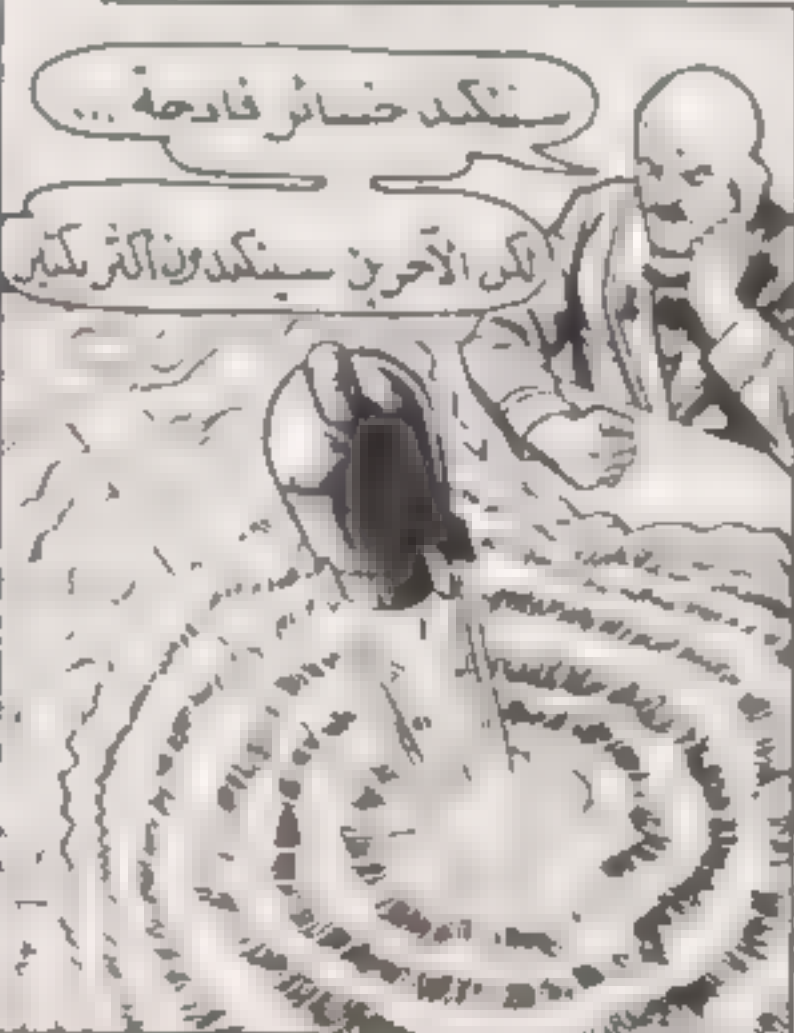 سنتكبد خسائر فادحة ...
لكن الآخرين سيتكبدون أكثر بكثير